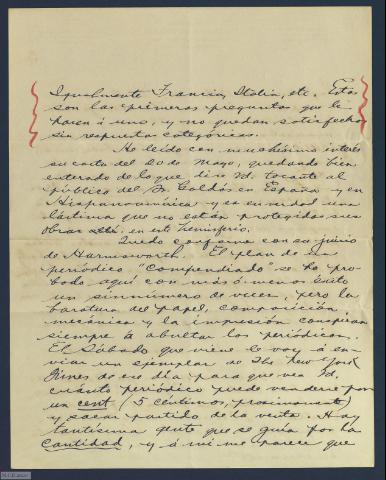 Igualmente Francia, Italia, etc. Estas
son las primeras preguntas que le
hacen á uno, y no quedan satisfechos
sin respuestas categóricas.
He leído con muchísimo interés
su carta del 20 de Mayo, quedando bien
enterado de lo que dice Vd. tocante al
público del Sr. Galdós en España y en
Hispanoamérica y es en verdad una
lástima que no están protegidas sus
obras allá en este hemisferio.
Quedo conforme con su juicio
de Harmsworth. El plan de un
periódico "Compendiado" se ha pro-
bado aquí con más ó menos éxito
un sinnúmero de veces, pero la
baratura del papel, composición
mecánica y la impresión conspiran
siempre á abultar los periódicos.
El Sábado que viene le voy á en-
viar un ejemplar de The New York
Times de ese día para que vea Vd.
cuánto periódico puede venderse por
un cent (5 céntimos, proximamente)
y sacar partido de la venta. Hay
tantísima gente que se guía por la
cantidad, y á mí me parece que